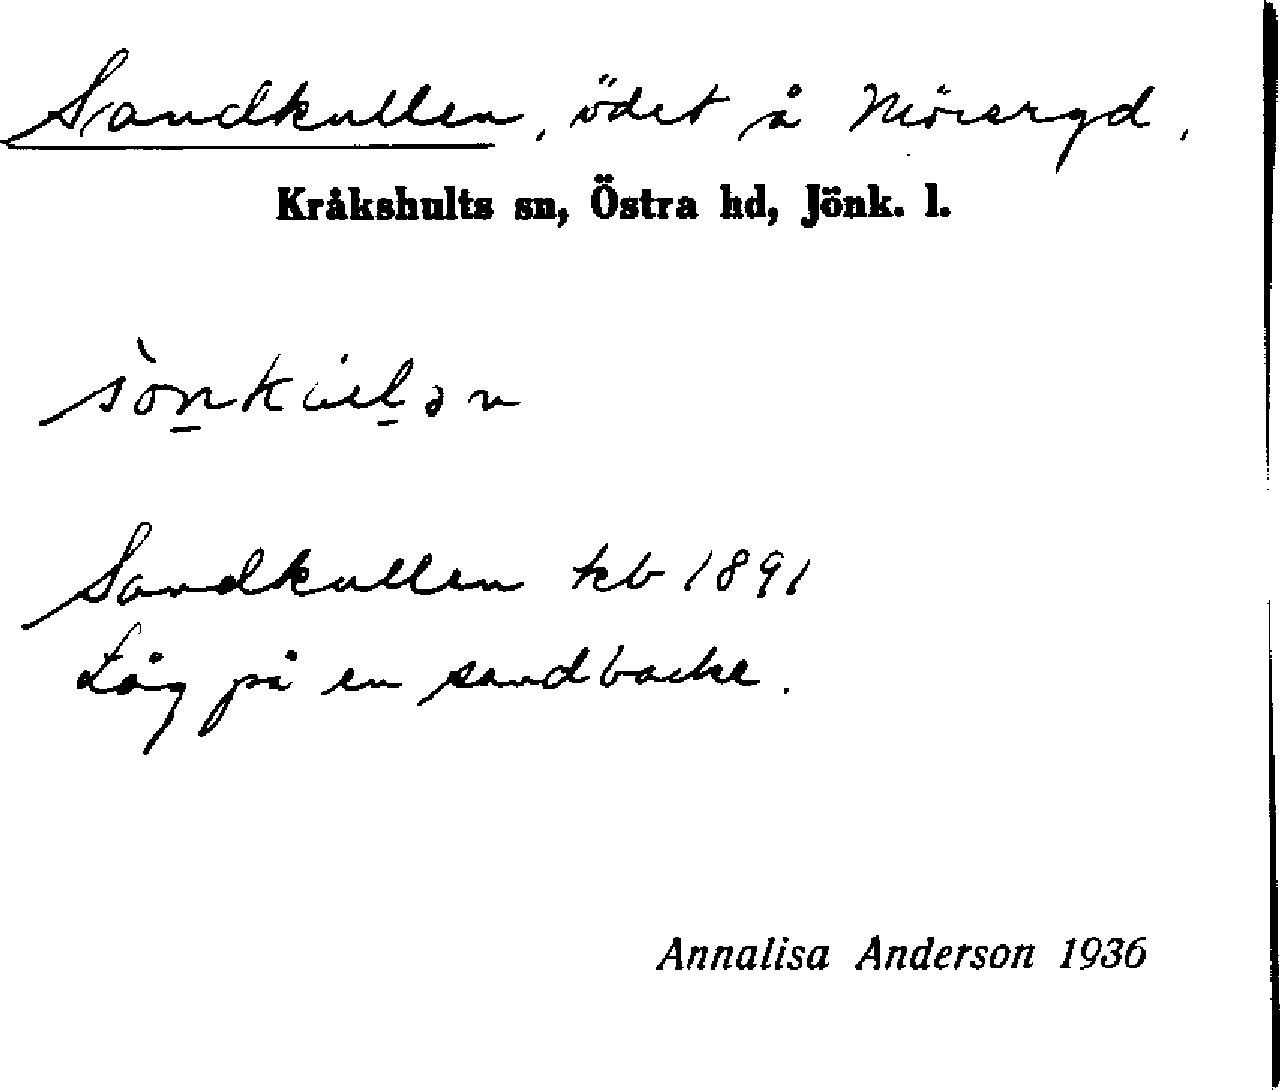 Sandkullen, ödet å Mörseryd.
Kråkshults sn, Östra hd, Jönk. l.
Sandkullen kb 1891
Låg på en sandbacke.
Annalisa Anderson 1936